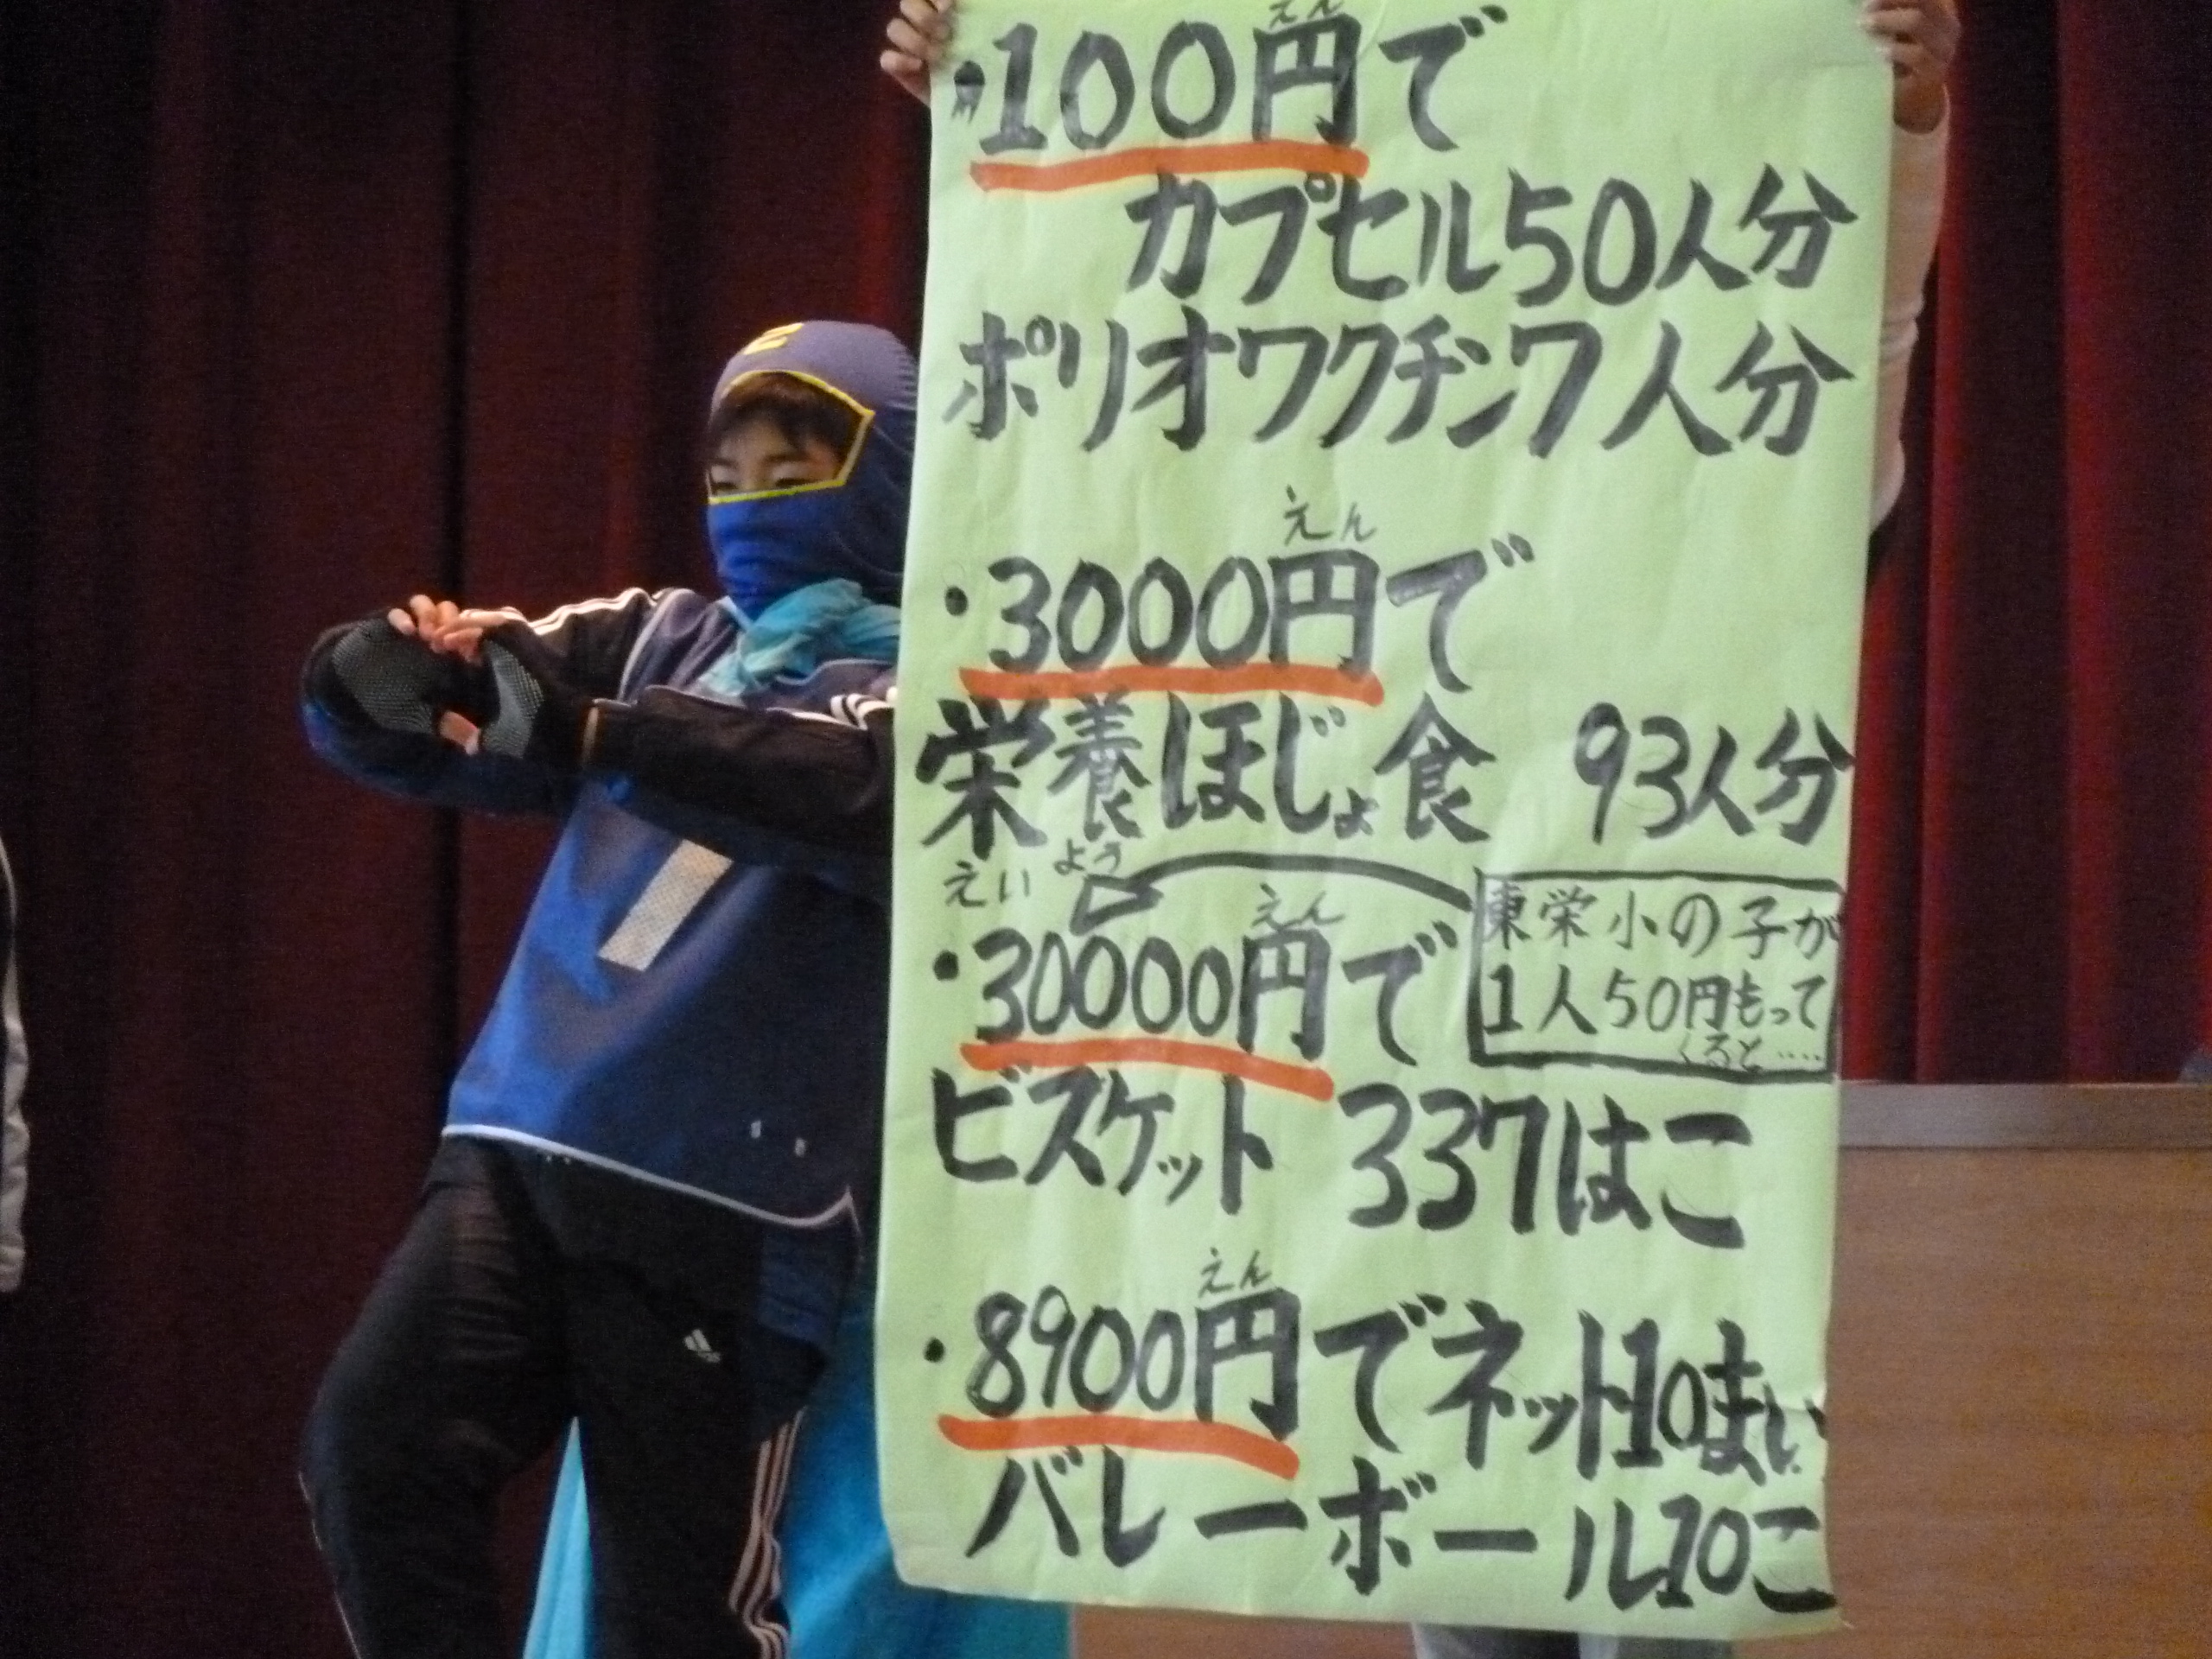 えん
・100円で
カプセル50人分
ポリオワクチン7人分
えん
・3000円で
栄養ほじょ食 93人分
えいよう
えん
・30000円で
東栄小の子が
1人50円もって
くると‥‥
ビスケット 337はこ
えん
・8900円でネット10まい
バレーボール10こ